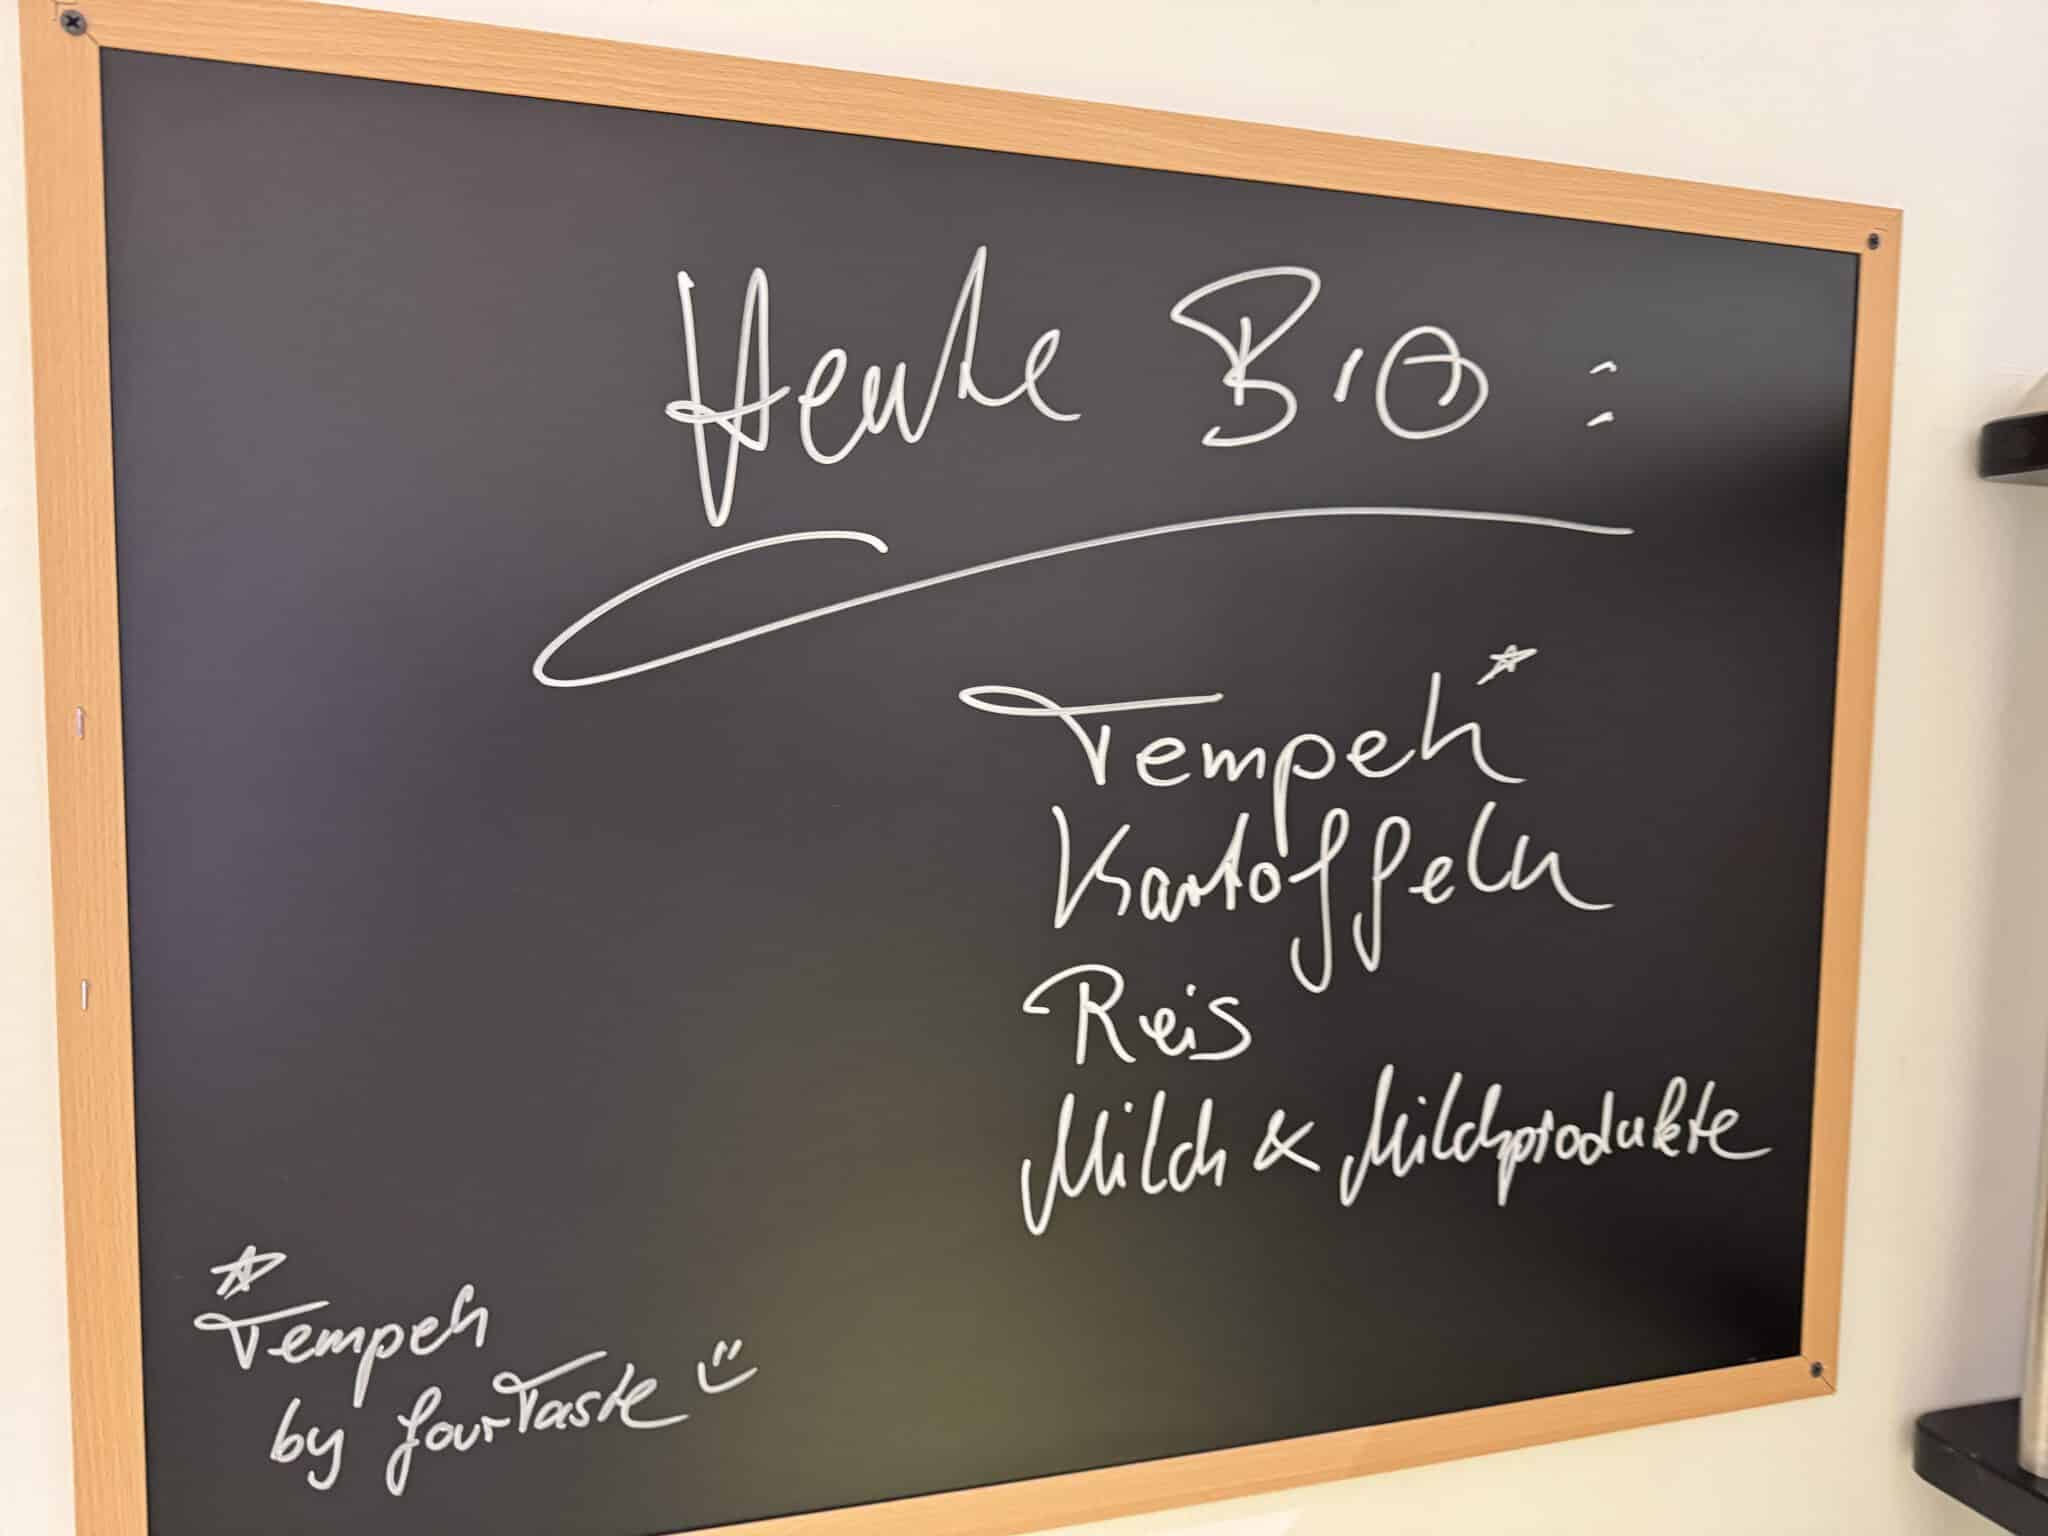 Heute Bio:
Tempeh*
Kartoffeln
Reis
Milch & Milchprodukte
*
Tempeh
by fourTaste